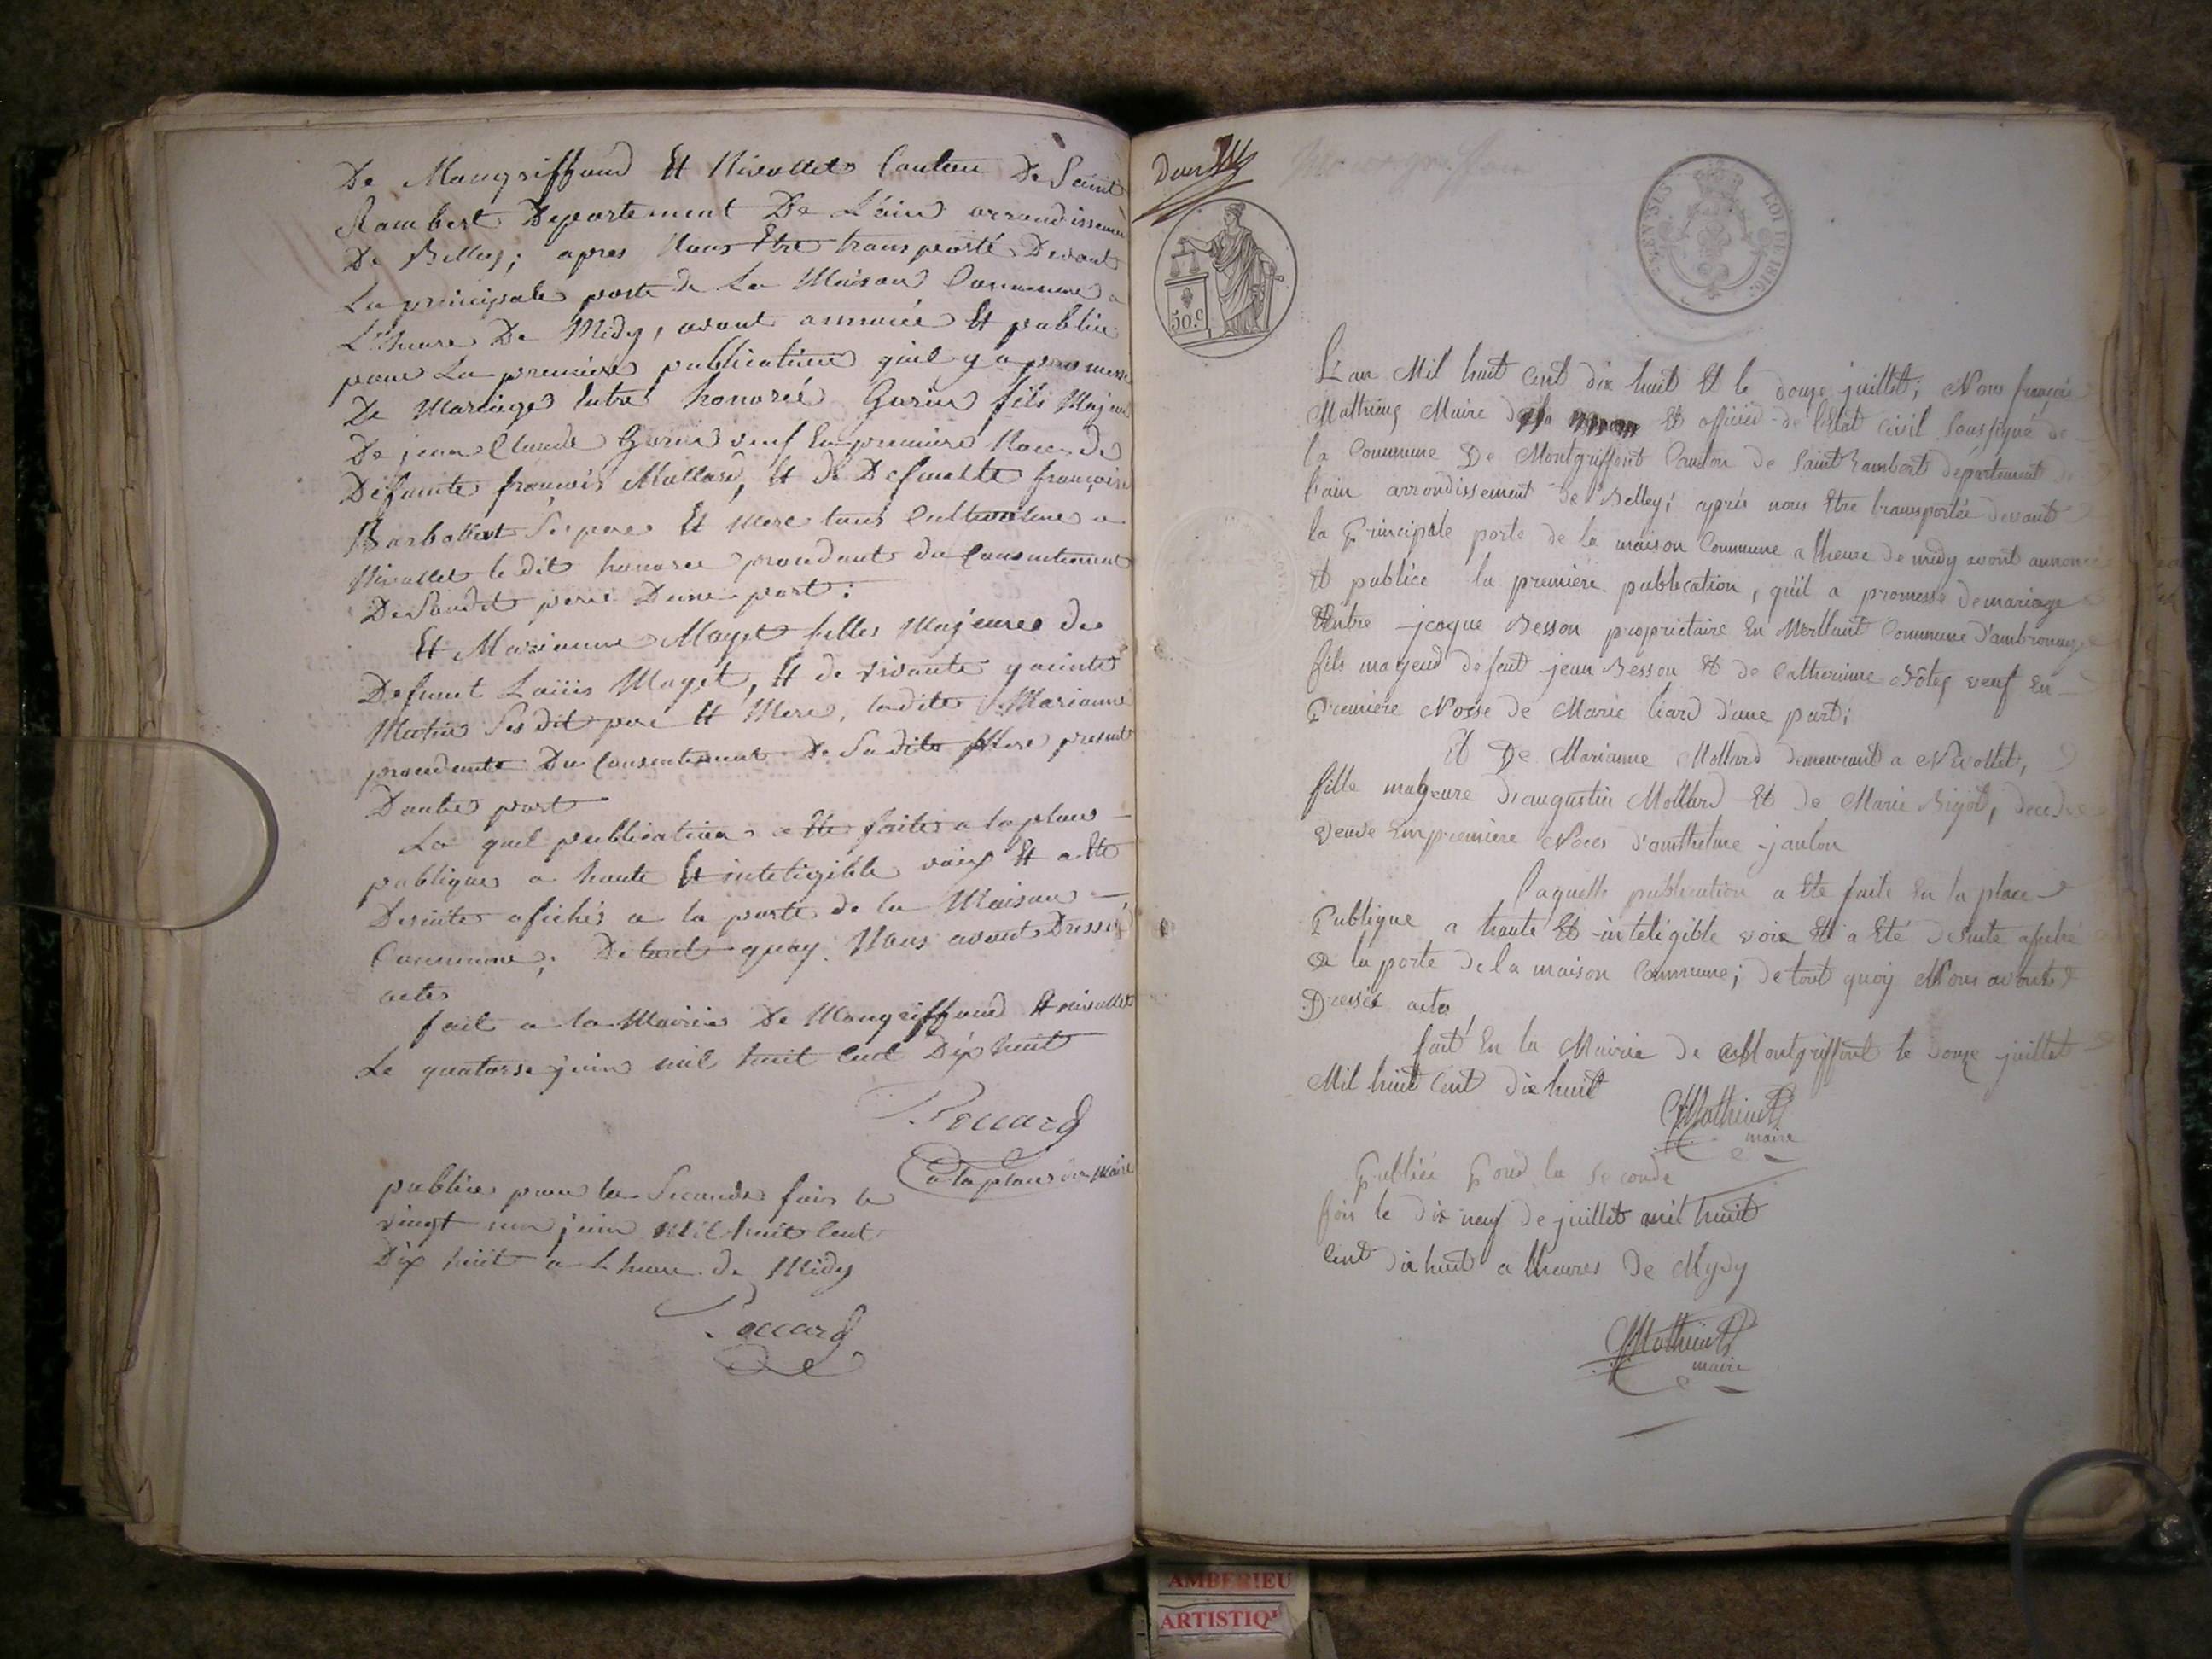 De Mongriffond Et Nivollet Canton De Saint
Rambert Departement De L'ain arrondissement
De Belley; apres Nous Etre transporté Devant
La principale porte de La Maison Commune a
L'heure De Midy, avont annoncé Et publié
pour La premiere publication quil y a promesse
De Mariage Entre honoré Gurin fils Majeur
De jean Claude Gurin veuf En premiere Noces de
Defunte françois Mollard, Et de Defunte françoise
Barbollat Ses pere Et Mere tous Cultivateur a
Nivollet le dit honoré procedant du Consentement
De Sondit pere Dune part:
Et Marianne Moget filles Majeures de
Defunt Laüis Moget, Et de vivante
Ses dit pere Et Mere, ladite Marianne
procedante Du Consentement De Sadite Mere present
Dautre part
La quel publication a Ete faite a la place
publique a haute Et inteligible voix Et a Ete
Desuite afiché a la porte de la Maison
Commune; De tout quoy Nous avont Dressé
actes
fait a la Mairie De Mongriffond Et nivollet
Le quatorse juin mil huit Cent Dix huit
Poccard
a la place du Maire
publie pour la Seconde fois le
vingt un juin Mil huit Cent
Dix huit a L heure de Midy
Poccard
LOI DE 1816.
50.c
L'an Mil huit Cent dix huit Et le douze juillet; Nous françois
Mathieu Maire Et officier de l'Etat Civil Soussigné de
la Commune De Montgriffont Canton de Saint Rambert departement de
l'ain arrondissement de Belley; aprés nous Etre transportée devant
la Principale porte de la maison Commune a lheure de midy avont annoncé
Et publiée la premiére publication, quil a promesse de mariage
Entre jcoque Besson proprietaire En Merllant Commune d'ambronay
fils mageud de feut jean Besson Et de Catherinne veuf En
Premiére Nosse de Marie liard d'une part;
Et De Marianne Mollard demeurant a Nivollet,
fille mageure d'augustin Mollard Et de Marie Bigot,
veuve Enpremiere Noces d'amthelme janlon
Laquelle publication a Ete faite En la place
Publique a haute Et inteligible voix Et a Eté desuite afiché
a la porte de la maison Commune; de tout quoy Nous avonts
Dressée actes
fait En la Mairie de Montgriffont le douze juillet
Mil huit Cent dix huit
Mathieu
maire
Publiée Pour la Seconde
fois le dix neuf de juillet mil huit
Cent dix huit a lheures De Mydy
Mathieu
maire
AMBERIEU
ARTISTIQ